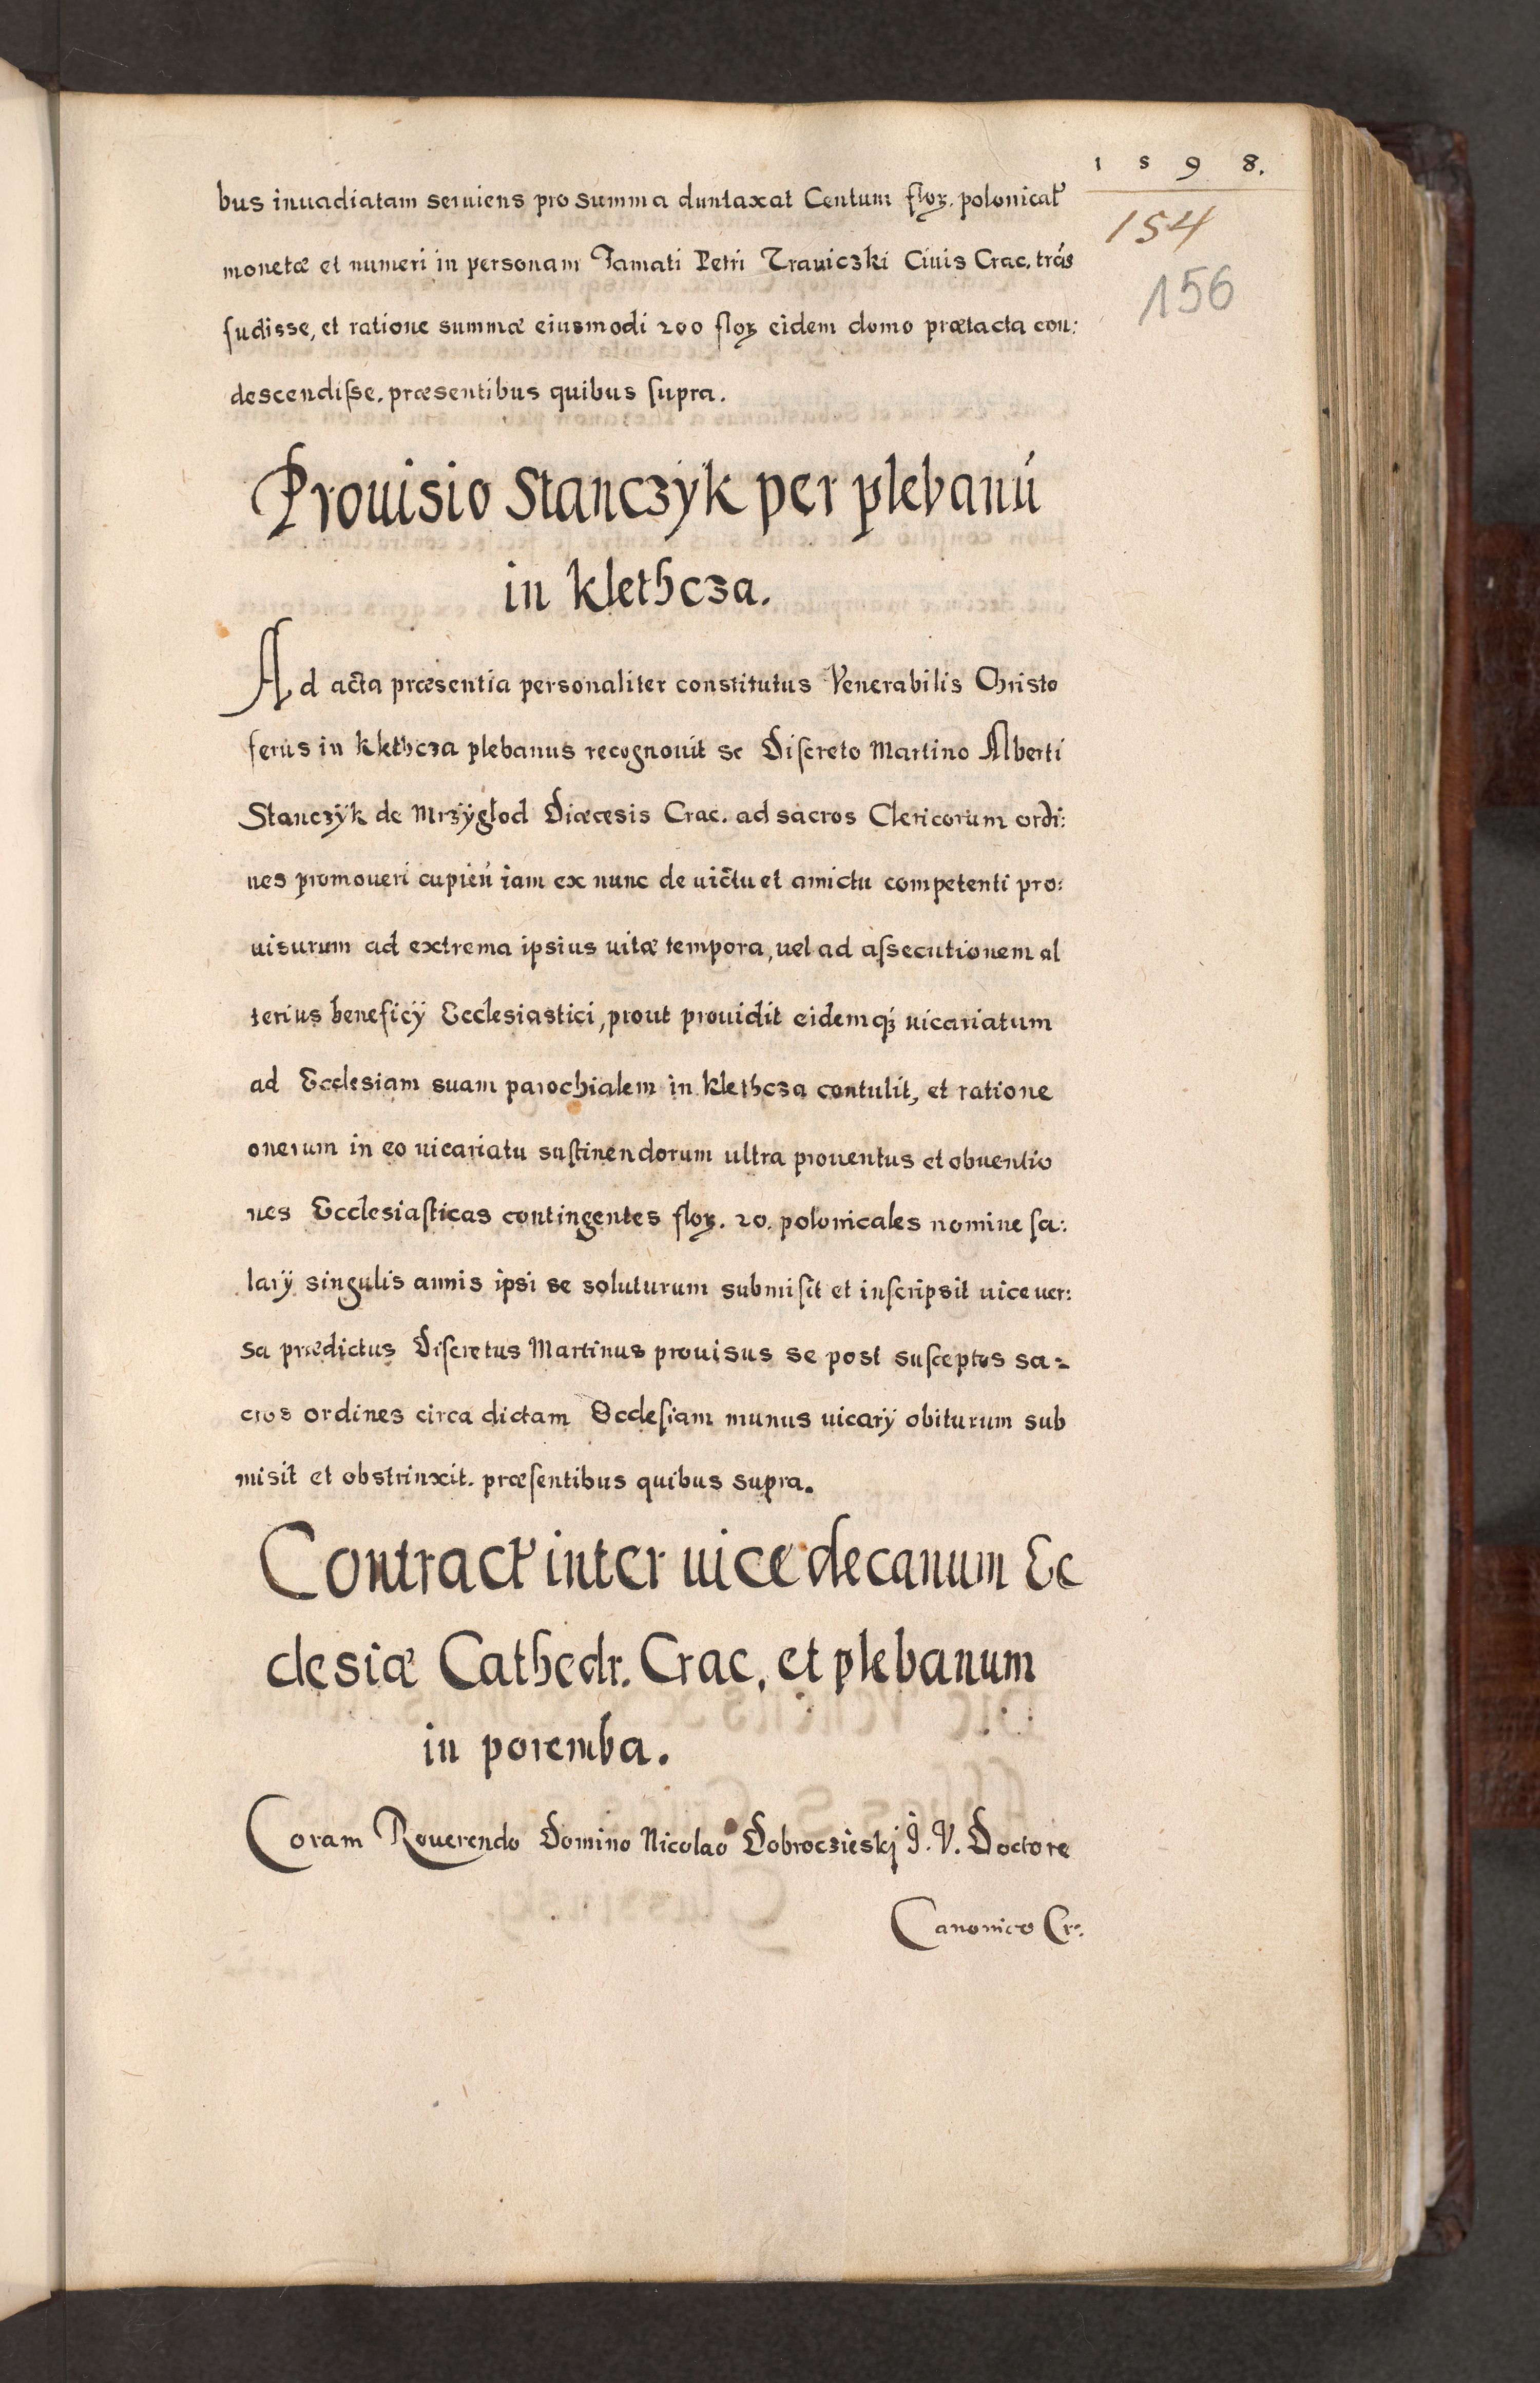 1598.
154
156
bus inuadiatam seruiens pro summa duntaxat Centum floꝝ. polonical'
monetæ et numeri in personam Famati Petri Trauiczki Ciuis Crac. trās
fudisse, et ratione summæ eiusmodi 200 floꝝ eidem domo prætacta con:
descendisse. præsentibus quibus supra.
Prouisio Stanczyk per plebanū
in klethcza.
Ad acta præsentia personaliter constitutus Venerabilis Christo
ferus in klethcza plebanus recognouit se Discreto Martino Alberti
Stanczÿk de Mrzÿgłod Diæcesis Crac. ad sacros Clericorum ordi:
nes promoueri cupien̄ iam ex nunc de uictu et amictu competenti pro:
uisurum ad extrema ipsius uitæ tempora, uel ad assecutionem al
terius beneficÿ Ecclesiastici, prout prouidit eidemqꝫ uicariatum
ad Ecclesiam suam parochialem in klethcza contulit, et ratione
onerum in eo uicariatu sustinendorum ultra prouentus et obuentio
nes Ecclesiasticas contingentes floꝝ. 20. polonicales nomine sa:
larÿ singulis annis ipsi se soluturum submisit et inscripsit uice uer:
sa prædictus Discretus Martinus prouisus se post susceptos sa-
cros ordines circa dictam Ecclesiam munus uicarÿ obiturum sub
misit et obstrinxit. præsentibus quibus supra.
Contract' inter uicedecanum Ec
clesiæ Cathedr. Crac. et plebanum
in poremba.
Coram Reuerendo Domino Nicolao Dobroczieskj J. V. Doctore
Canonico Cr: